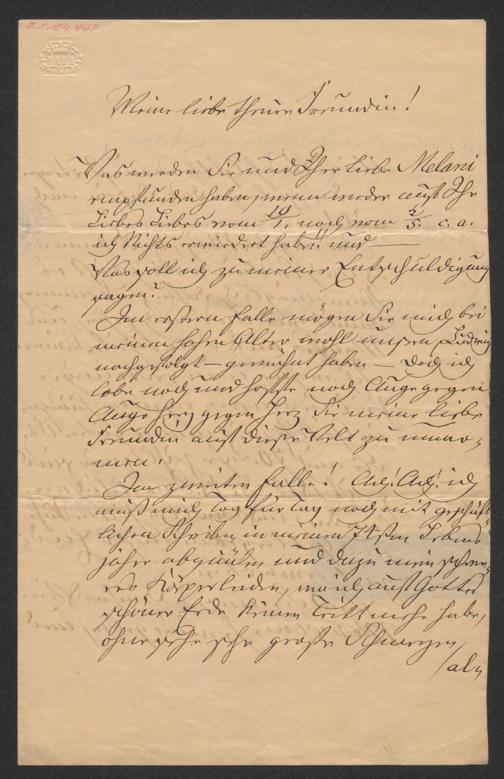 I.N. 104.447
Meine liebe theure Freundin!
Was werden Sie und Ihre liebe Melani
empfunden haben, wenn weder auf Ihr
Liebes Liebes vom 19/1. noch vom 2/5. c. a.
ich Nichts erwiedert habe!! und
Was soll ich zu meiner Entschuldigung
sagen?
Im erstern Falle mögen Sie mich bei
meinem hohen Alter wohl unserm Ludwig
nachgefolgt — gewähnt haben — doch ich
lebe noch und hoffe noch Auge gegen
Auge Herz gegen Herz Sie meine liebe
Freundin auf dieser Welt zu umar-
men.
Im zweiten Falle! Ach! Ach! ich
muß mich Tag für Tag noch mit geschäft
lichen Schreiben in meinem 74ten Lebens
jahre abquälen und dazu mein schwe-
res Körperleiden, wo ich auf Gottes
schöner Erde keinen Tritt mehr habe,
ohne sehr sehr große Schmerzen,